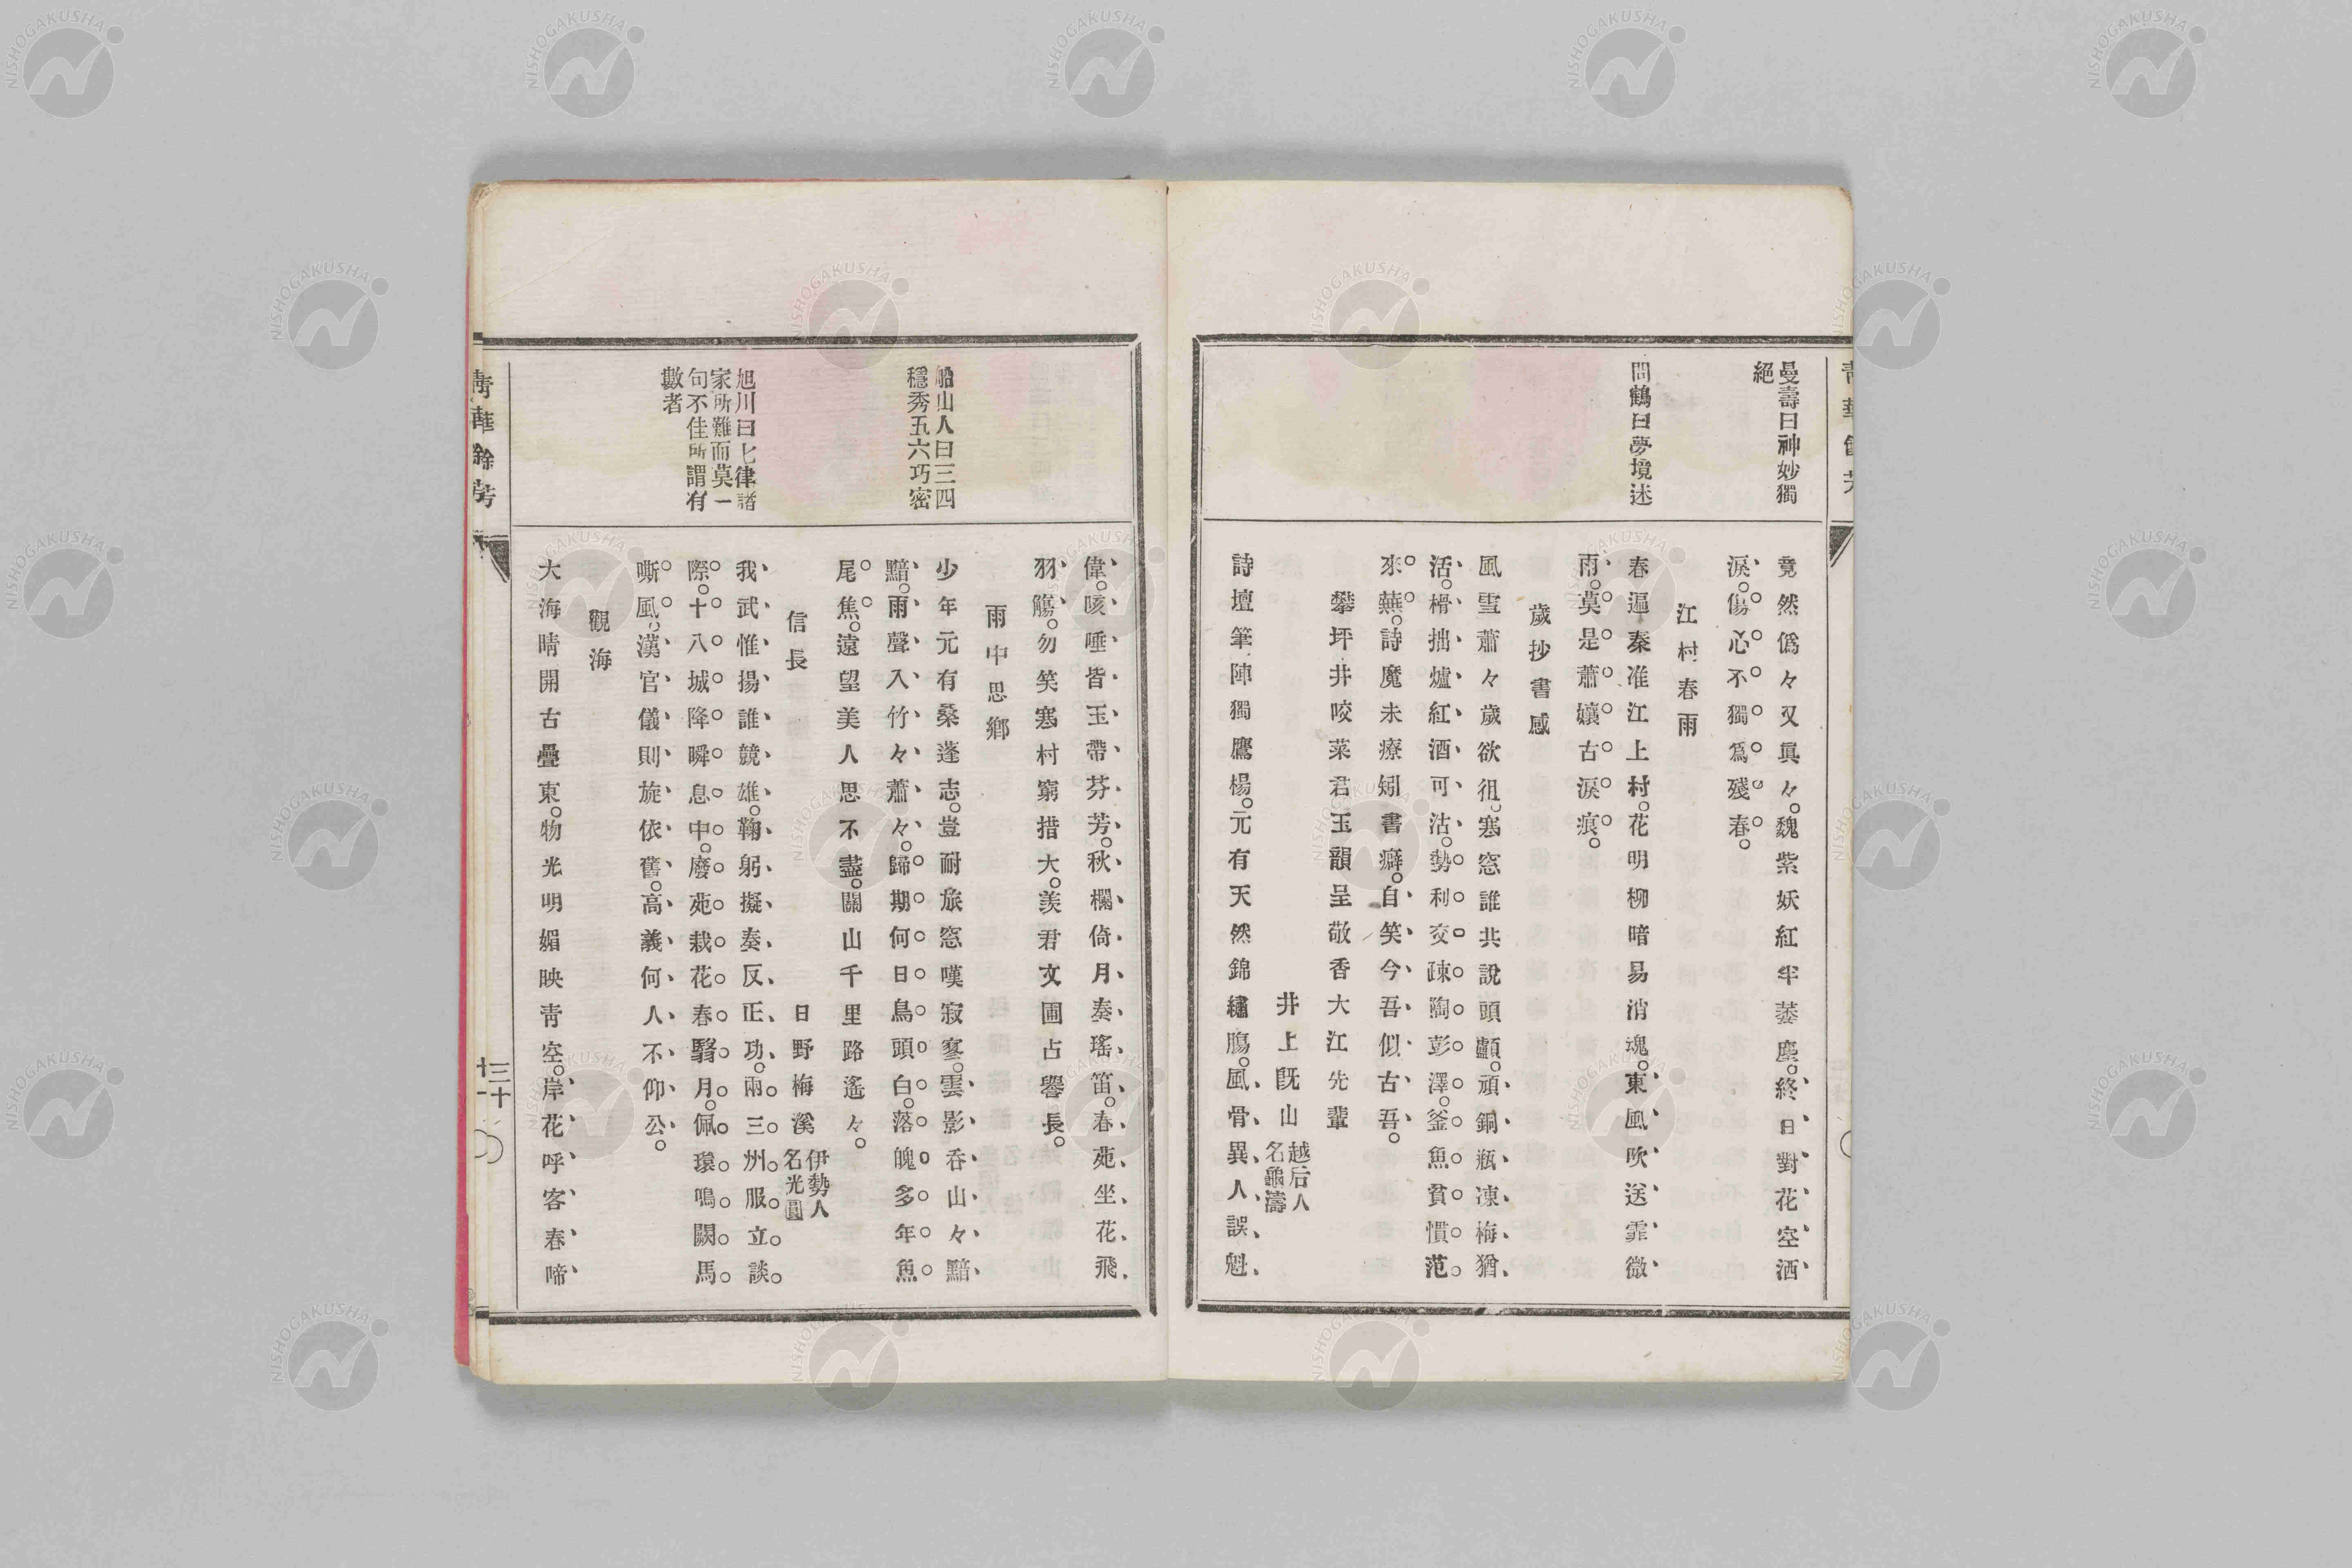 曼壽曰神妙獨
絕
問鶴曰夢境述
竟然僞々又眞々。魏紫妖紅半萎塵。終日對花空洒
淚。傷心不獨爲殘春。
江村春雨
春遍秦淮江上村。花明柳暗易消魂。東風吹送霏微
雨。莫是蕭孃古淚痕。
歲抄書感
風雪蕭々歲欲徂。寒窓誰共說頭顱。頑銅瓶凍梅猶
活。榾拙爐紅酒可沽。勢利交疎陶彭澤。釜魚貧慣范
來蕪。詩魔未療矧書癖。自笑今吾似古吾。
攀坪井咬菜君玉韻呈敬香大江先輩
井上旣山 越后人
名龜濤
詩壇筆陣獨鷹楊。元有天然錦繡膓。風骨異人誤魁
船山人曰三四
穩秀五六巧密
旭川曰七律諸
家所難而莫一
句不佳所謂有
數者
偉。咳唾皆玉帶芬芳。秋欄倚月奏瑤笛。春苑坐花飛
羽觴。勿笑寒村窮措大。羨君文圃占譽長。
雨中思鄉
少年元有桑蓬志。豈耐旅窓嘆寂寥。雲影吞山々黯
黯。雨聲入竹々蕭々。歸期何日鳥頭白。落魄多年魚
尾焦。遠望美人思不盡。關山千里路遙々。
信長 日野梅溪 伊勢人
名光圓
我武惟揚誰競雄。鞠躬擬奏反正功。兩三州服立談
際。十八城降瞬息中。廢苑栽花春翳月。佩環鳴闕馬
嘶風。漢官儀則旋依舊。高義何人不仰公。
觀海
大海晴開古疊東。物光明媚映靑空。岸花呼客春啼
靑華餘芳
三十
十一